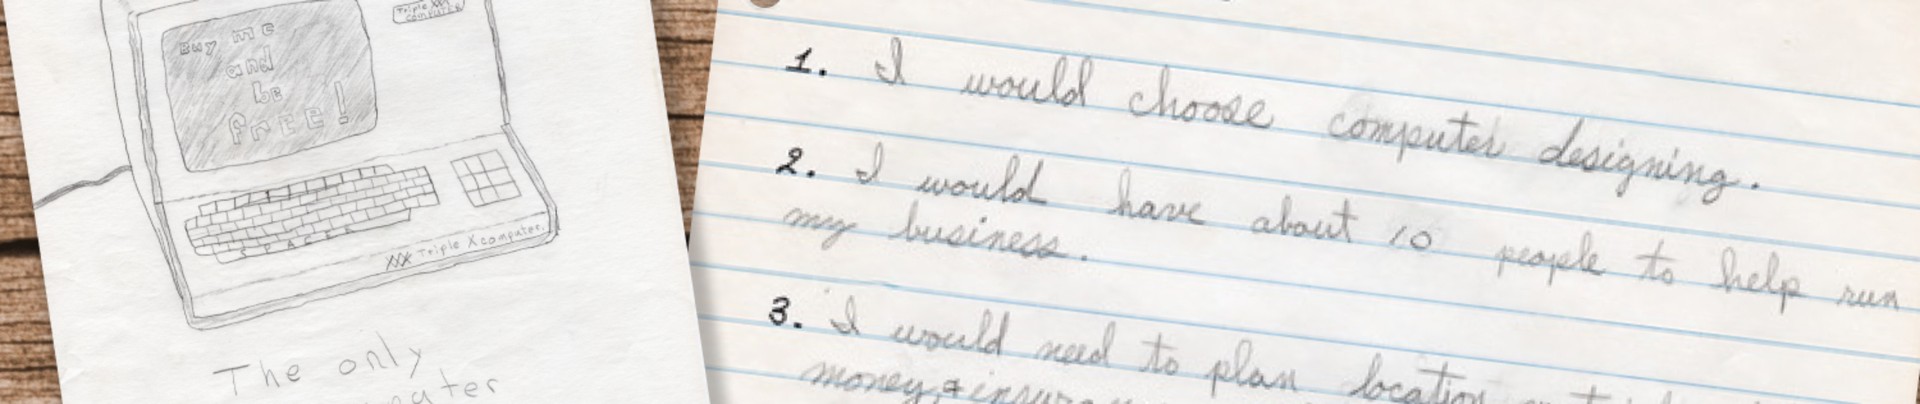 Triple XXX
Computer
Buy me
and
be
free!
SPACER
XXX Triple X computer.
The only
1. I would choose computer designing.
2. I would have about 10 people to help run
my business.
3. I would need to plan location
money, +